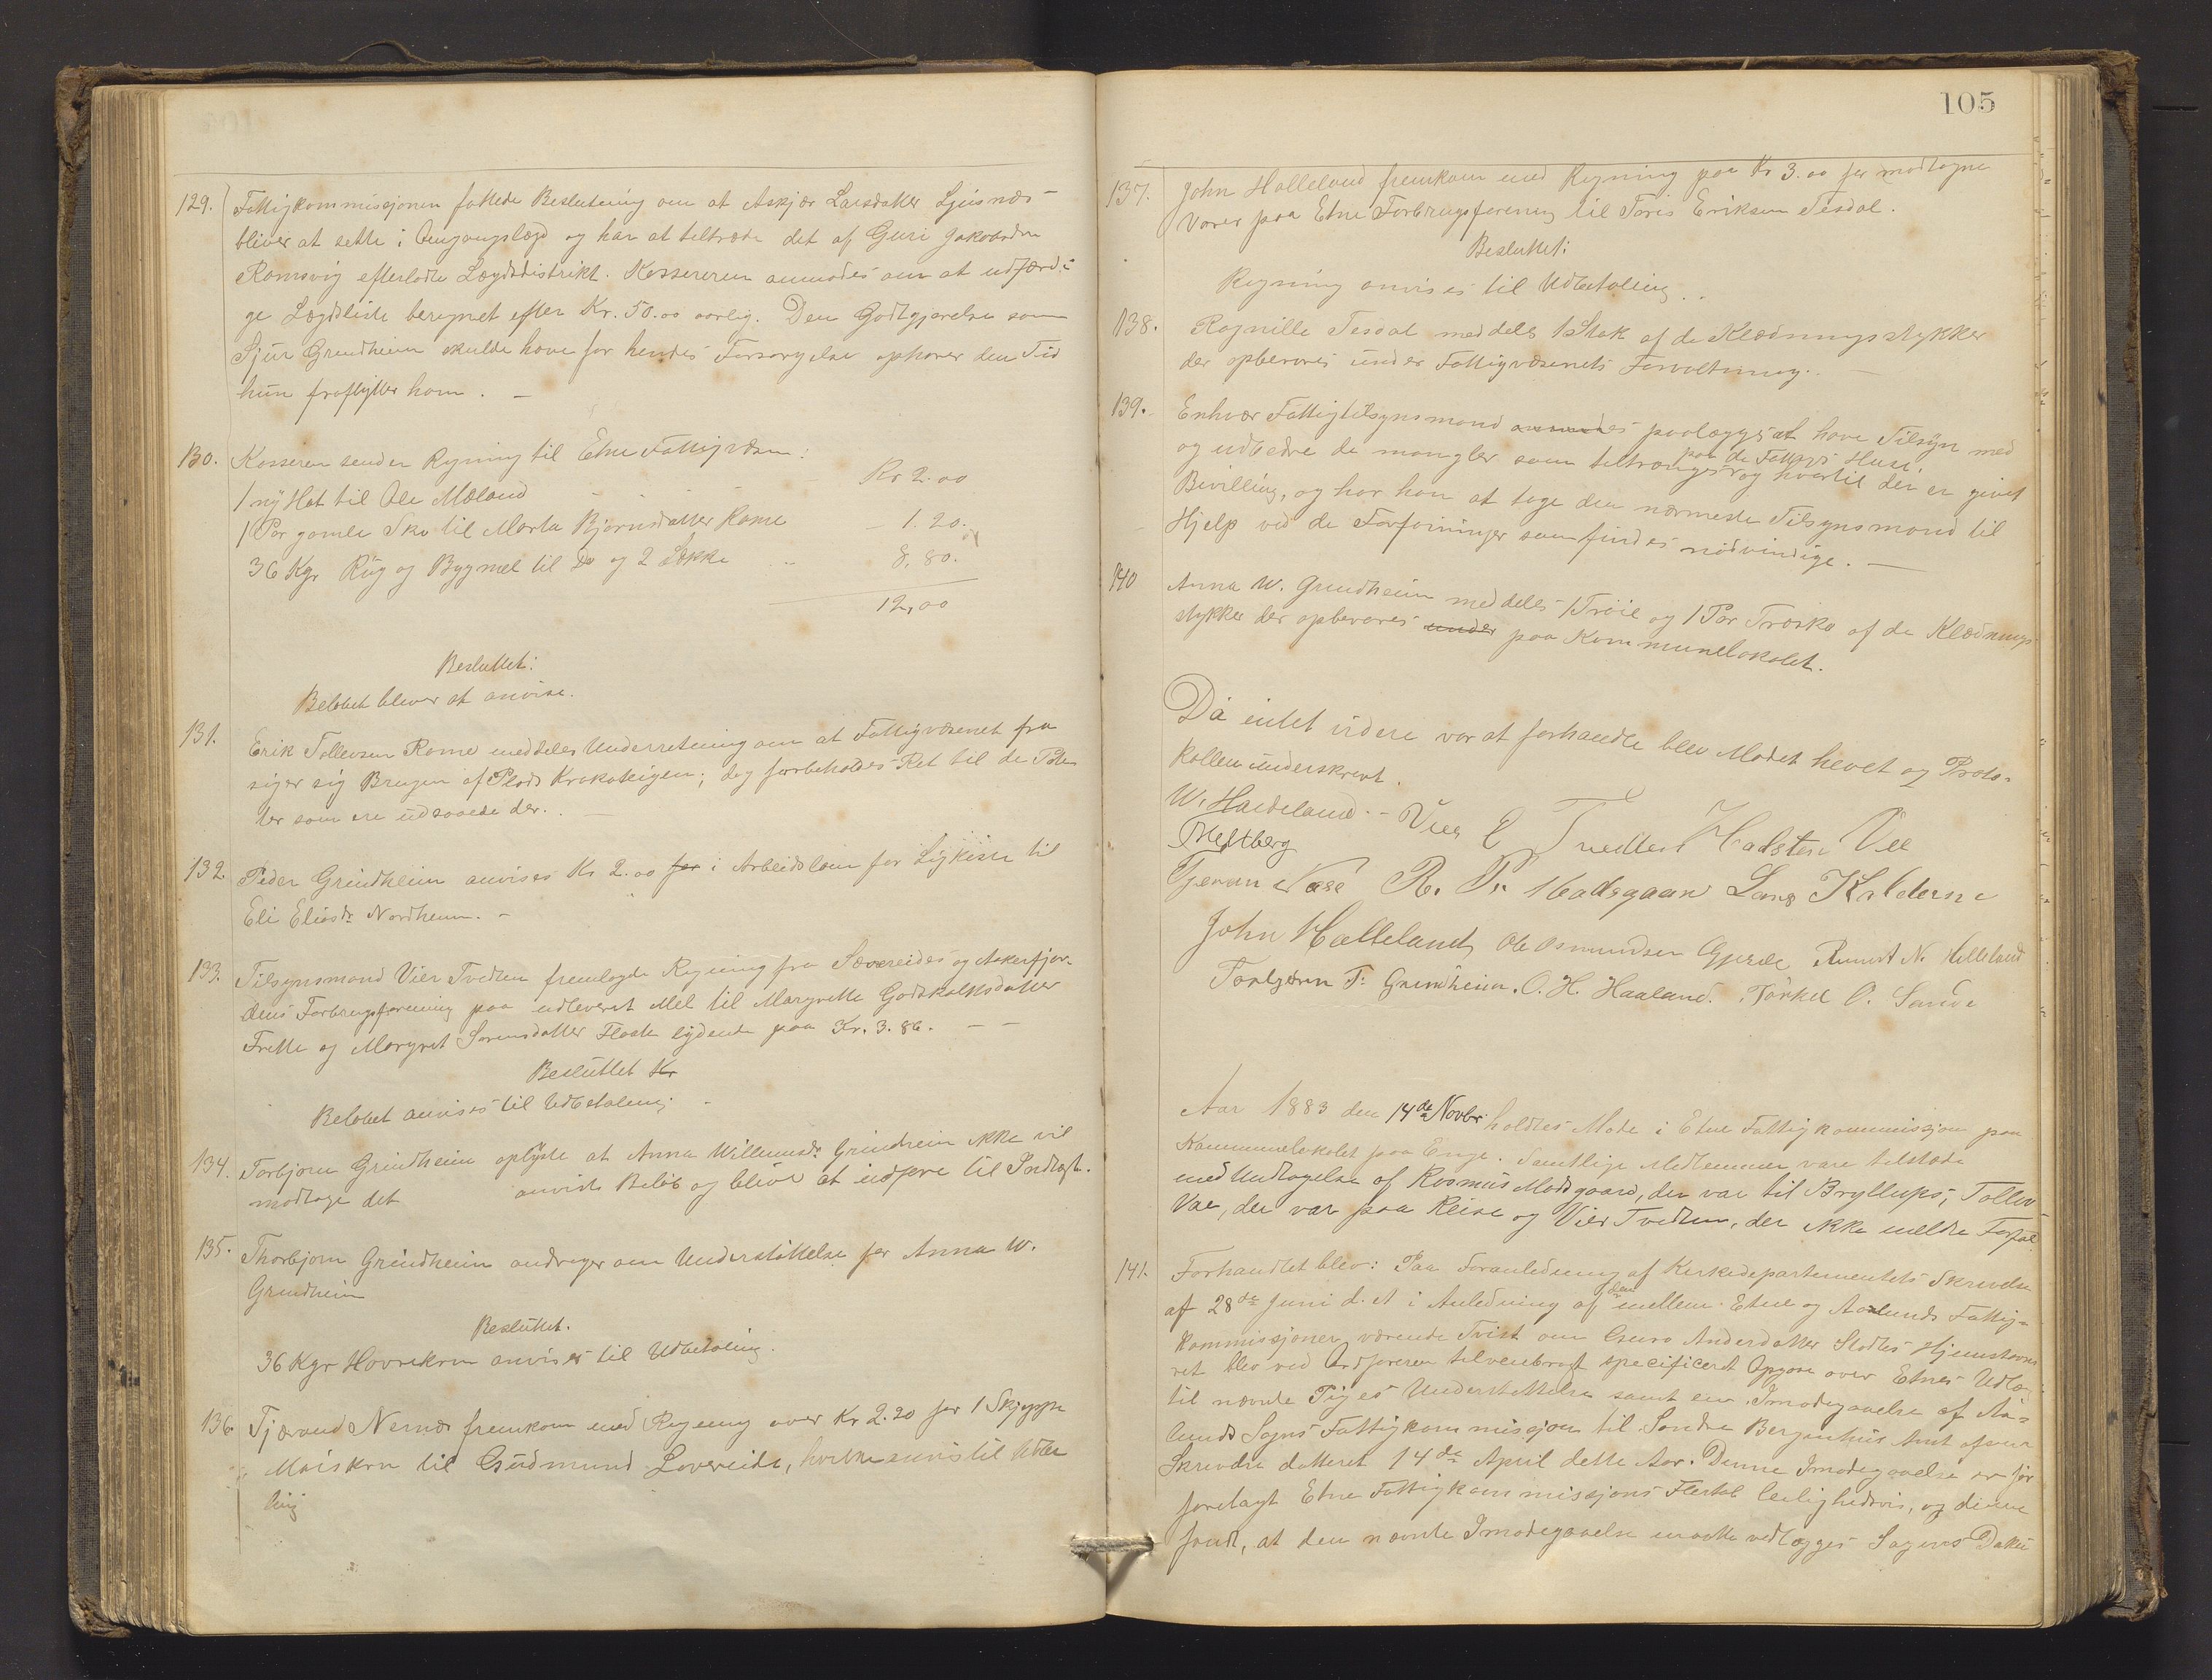 129. Fattigkommissjonen fattede Beslutning om at Askjær Larsdatter Ljusnes
bliver at sette i Omgangslægd og har at tiltræde det af Guri Jakobsdtr
Ramsvig efterladte Lægdsdistrikt. Kassereren anmodes om at udfærdi-
ge Lægdsliste beregnet efter Kr. 50.00 aarlig. Den Godtgjørelse som
Sjur Grindheim skulde have for hendes Forsørgelse ophører den Tid
hun fraflytter ham. -
130. Kassereren sender Regning til Etne Fattigvæsen:
1 ny Hat til Ole Mæland Kr 2.00
1 Par gamle Sko til Marta Bjørnsdatter Rame - 1.20.
36 Kgr Rug og Bygmel til Do og 2 Sække 8.80.
12,00
Besluttet:
Beløbet bliver at anvise.
131. Erik Tollevsen Rame meddeles Underretning om at Fattigvæsenet fra
siger sig Brugen af Plads Krokateigen; dog forbeholdes Ret til de Pote
ter som ere udsaaede der. -
132. Peder Grindheim anvises Kr 2.00 for i Arbeidsløn for Ligkiste til
Eli Eliasdr Nordheim. -
133. Tilsynsmand Vier Tvedten fremlagde Regning fra Sævareides og Aakrefjor-
dens Forbrugsforening paa udleveret Mel til Margrette Godskalksdatter
Frette og Margret Sørensdatter Flaate lydende paa Kr. 3.86. - -
Besluttet Kr
Beløbet anvises til Udbetaling. -
134. Torbjørn Grindheim oplyste at Anna Willumsdr Grindheim ikke vil
modtage det anviste Beløb og blive at udføre til Indtægt.
135. Thorbjørn Grindheim andrager om Understøttelse for Anna W.
Grindheim
Besluttet.
36 Kgr Havrekorn anvises til Udbetaling.
136. Tjærand Nernæs fremkom med Regning over Kr 2.20 for 1 Skjeppe
Maiskorn til Gudmund Løvereide, hvilke anvis til Udbeta
ling
105
137. John Halleland fremkom med Regning paa Kr 3.00 for modtagne
Varer paa Etne Forbrugsforening til Toris Eriksen Tesdal.
Besluttet:
Regning anvises til Udbetaling.
138. Ragnille Tesdal meddels 1 Stak af de Klædningsstykker
der opbevares under Fattigvæsenets Forvaltning. -
139. Enhver Fattigtilsynsmand anmodes paalægges at have Tilsyn med
paa de Fattiges Huse,
og udbedre de mangler som tiltrænges og hvortil der er givet
Bevilling, og har han at tage den nærmeste Tilsynsmand til
Hjelp ved de Forføininger som findes nødvendige. -
140 Anna W. Grindheim meddeles 1 Trøie og 1 Par Træsko af de Klædnings-
stykker der opbevares under paa Kommunelokalet.
Da intet videre var at forhandle blev Mødet hevet og Proto-
kollen underskrevt.
W. Haideland. - Vier E Tvedten Halsten Vee
Meltberg
Tjeran Næse R. P. Madsgaar Lars Kalderne
John Halleland Ole Osmundsen Gjerde Amund N. Helleland
Torbjørn T. Grindheim. O. H. Haaland. Torkel O. Sande
Aar 1883 den 14de Novbr holdtes Møde i Etne Fattigkommissjon paa
Kommunelokalet paa Enge. Samtlige Medlemmer vare tilstæde
med Undtagelse af Rasmus Madsgaard, der var til Bryllups, Tollev
Vae, der var paa Reise og Vier Tvedten, der ikke meldte Forfal.
141. Forhandlet blev: Paa Foranledning af Kirkedepartementets Skrivelse
af 28de Juni d. A i Anledning af den mellem Etne og Aalunds Fattig-
kommissjoner værende Tvist om Guro Andersdatter Stødles Hjemstavns
ret blev ved Ordføreren tilveiebragt specificeret Opgave over Etnes Udlæ
til nævnte Piges Understøttelse samt en Imødegaaelse af Aa-
lunds Sogns Fattigkommissjon til Søndre Bergenhus Amt afgivne
Skrivelse datteret 14de April dette Aar. Denne Imødegaaelse er før
forelagt Etne Fattigkommissjons Flertal leilighedsvis, og denne
fandt, at den nævnte Imødegaaelse maatte vedlægges Sagens Doku